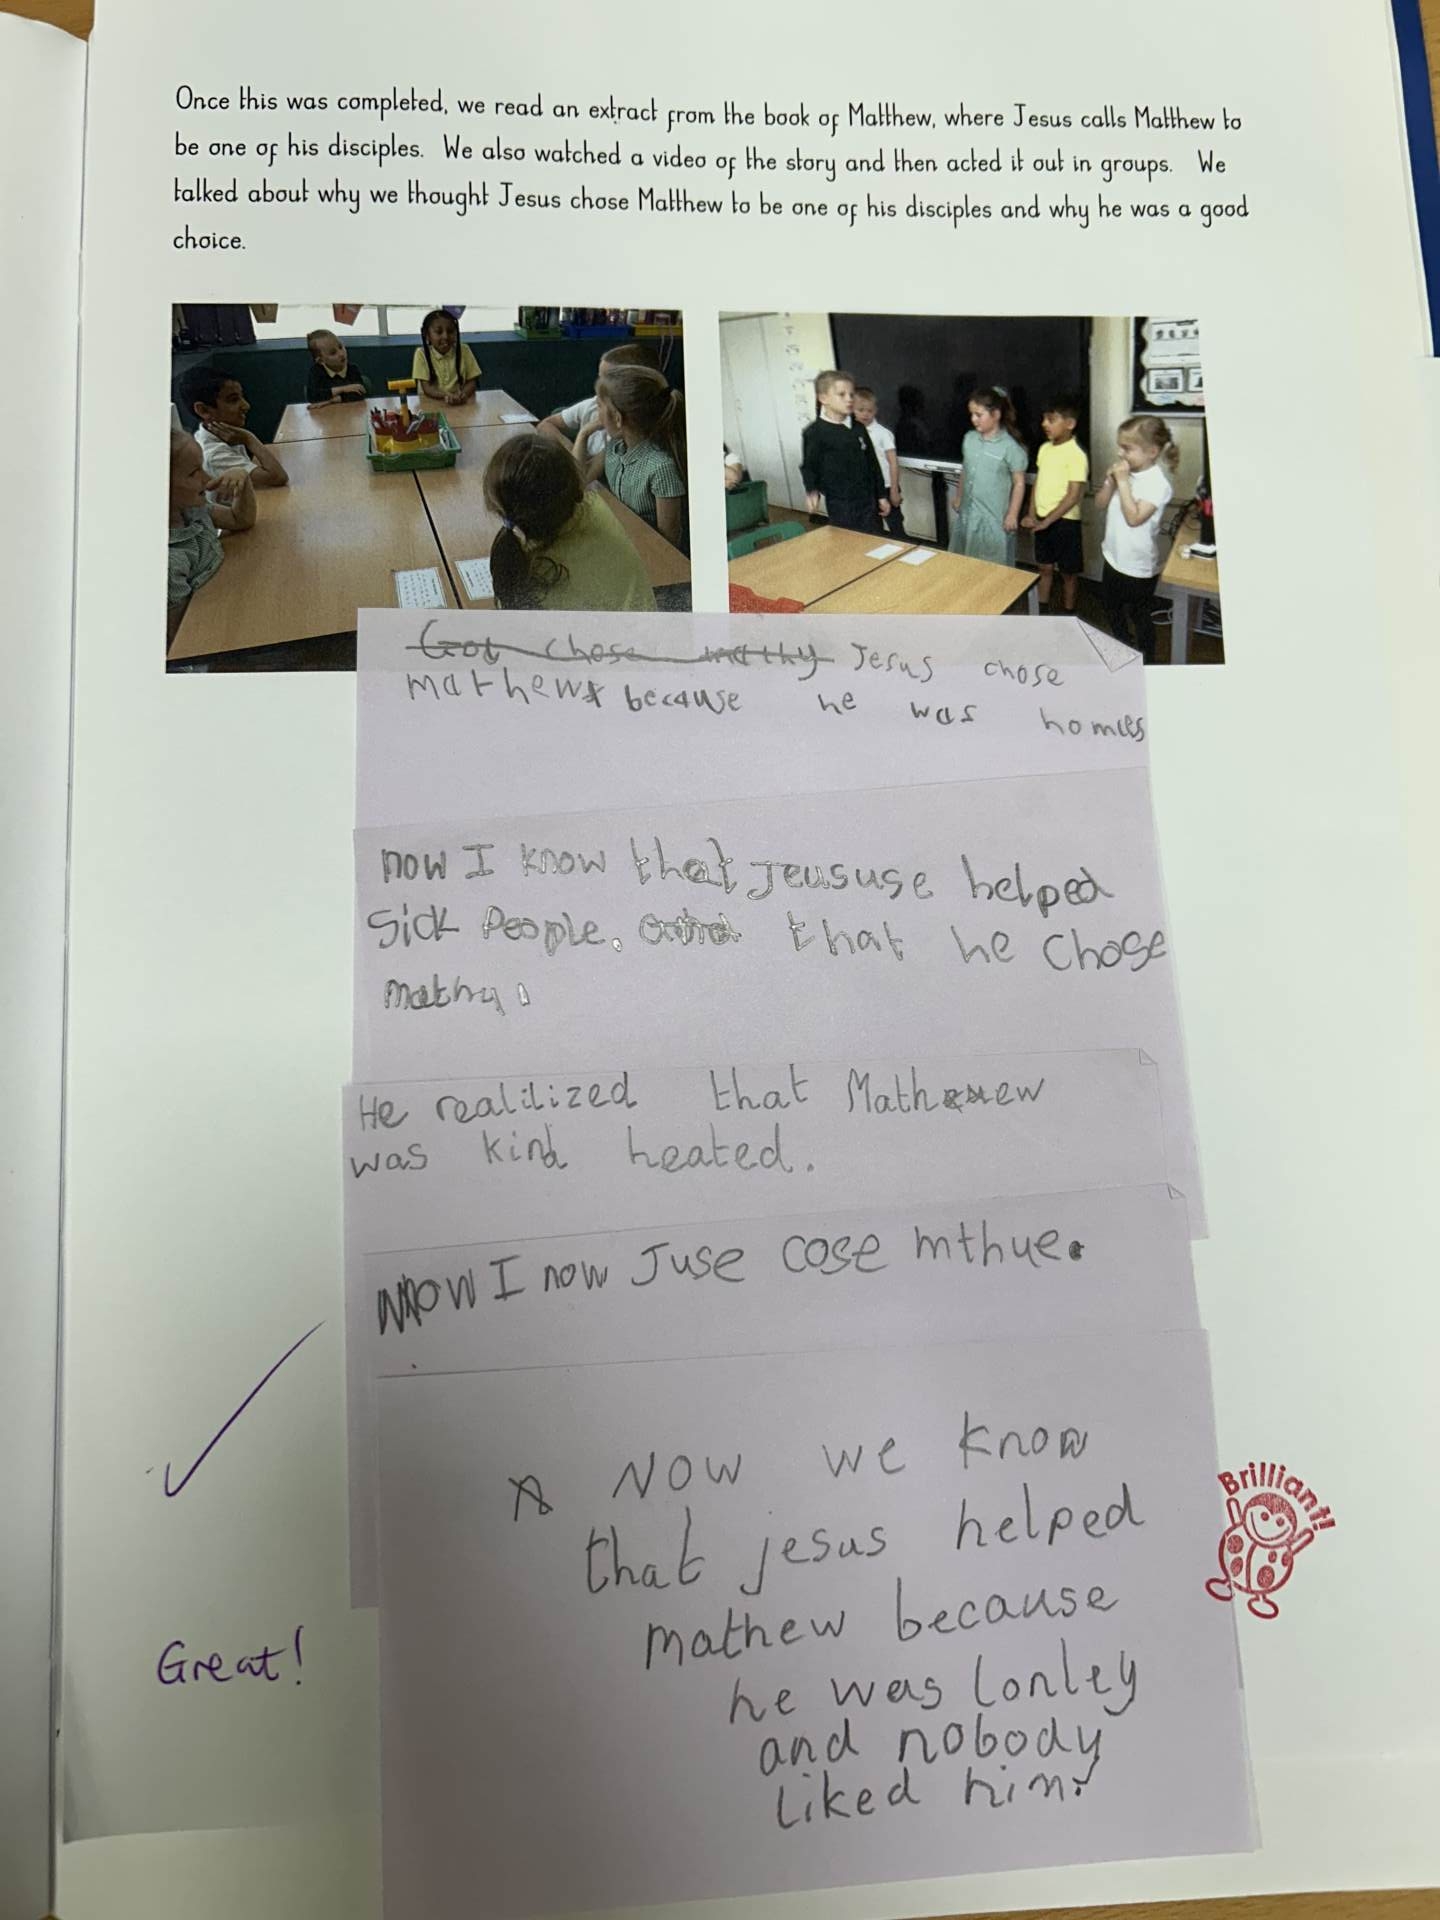 Once this was completed, we read an extract from the book of Matthew, where Jesus calls Matthew to
be one of his disciples. We also watched a video of the story and then acted it out in groups. We
talked about why we thought Jesus chose Matthew to be one of his disciples and why he was a good
choice.
chose mathy Jesus chose
mathew because he was
now I know that Jeususe helped
sick People. that he chose
mathy.
He realilized that Mathew
was kind heated.
Now I now Juse cose mthue.
Now we know
that jesus helped
mathew because
he was lonley
and nobody
liked him.
Brilliant!
Great!